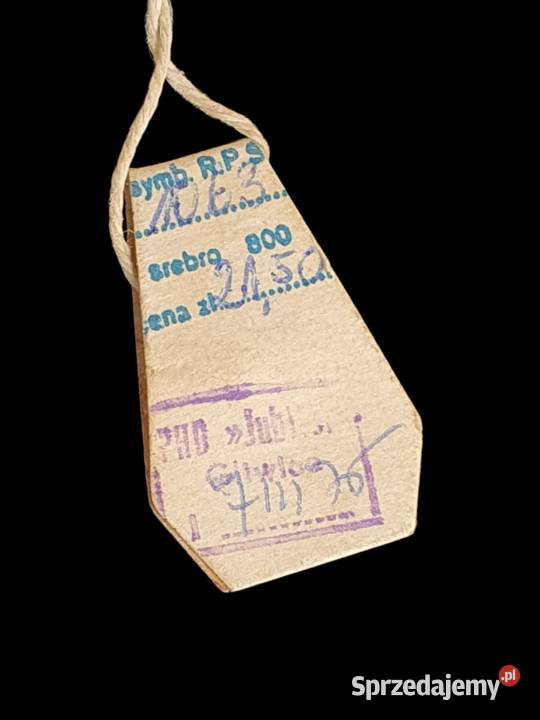 symb. R.P.S
srebro 800
cena zł. 21,50
PHD »Jubi
Gliwice
7 III
Sprzedajemy.pl